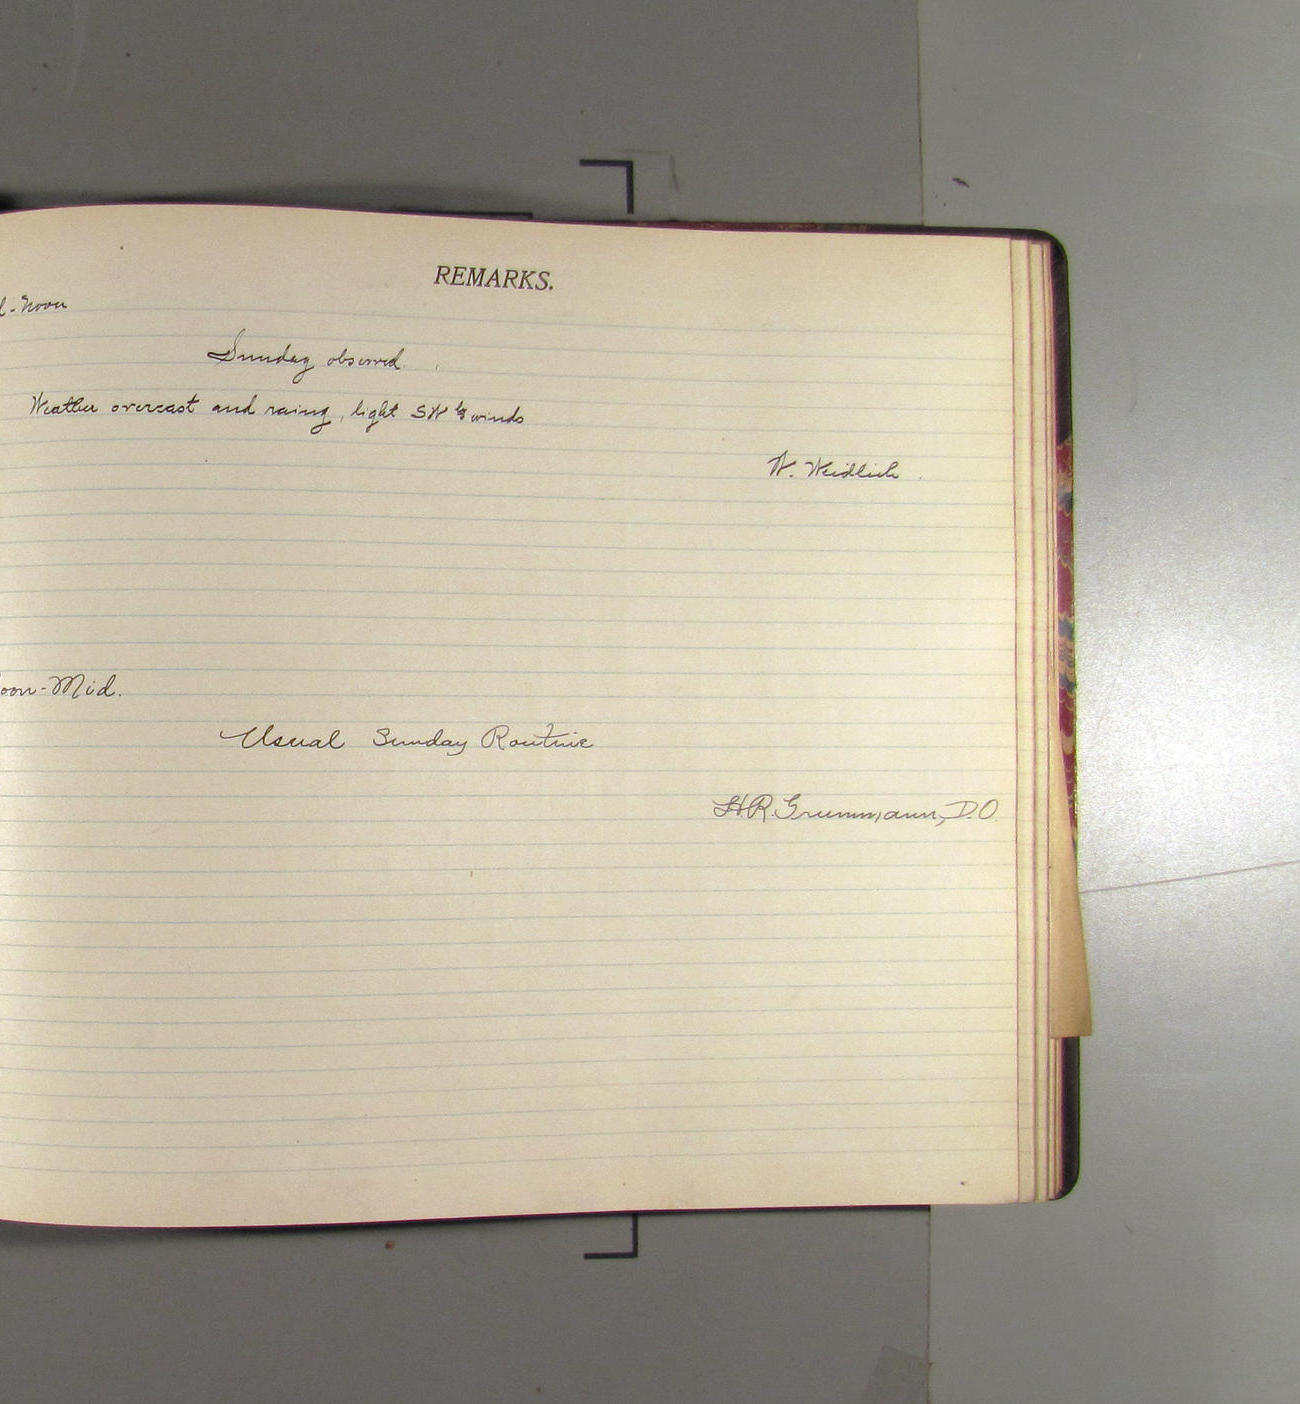 REMARKS.
d-Noon
Sunday observed.
Weather overcast and raing, light SW ly winds
W. Weidlich
oon-Mid.
Usual Sunday Routine
H.R. Grummann, D.O.